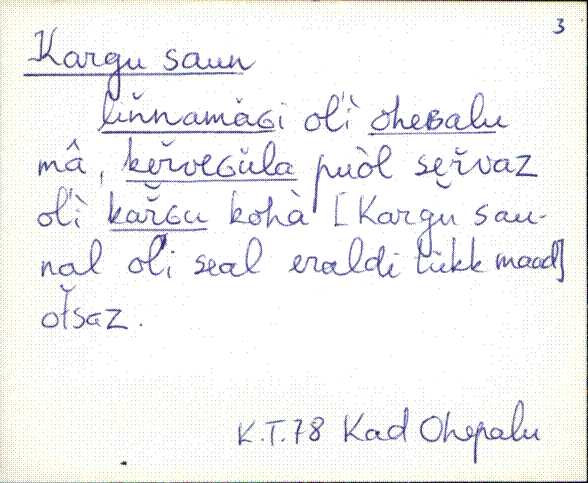 3
Kargu saun
liňnamäɢi oľì oheʙalu
mâ, keřveɢüla puòl seřvaz
oľì kařɢu kohà [Kargu sau-
nal oli seal eraldi tükk maad]
ořsaz.
K.T.78 Kad Ohepalu